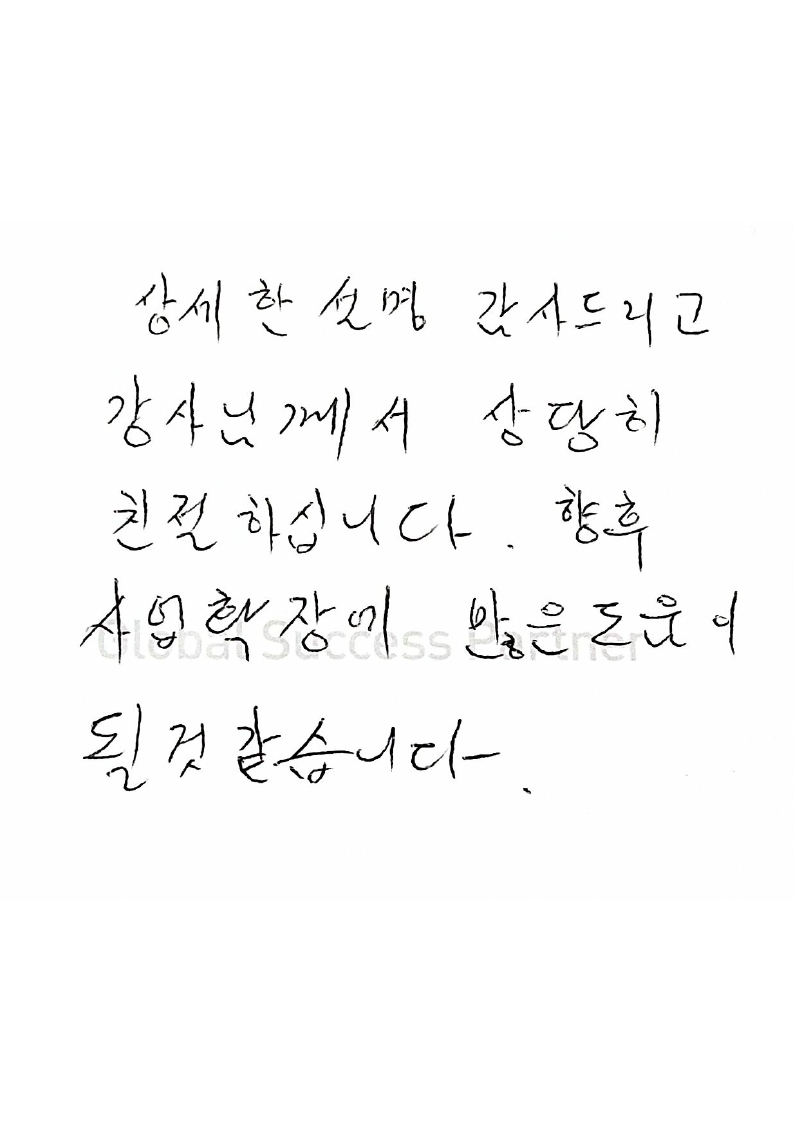 상세한 설명 감사드리고
강사님께서 상당히
친절하십니다. 향후
사업확장에 많은 도움이
Global Success Partner
될것 같습니다.